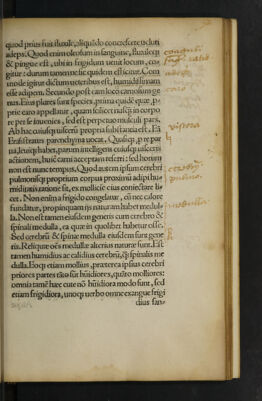 quod prius fuit fluxile, aliquãdo concrescere ueluti
adeps. Quod enim oleosum in sanguine, fluxileq;
& pingue est, ubi in frigidum uenit locum, co-
gitur: durum tamen nõ
adipem. Secundo post eam loco carnosum ge-
nus. Eius plures sunt species, prima quidẽ quæ p-
prie caro appellatur, quam scilicet nusq in corpo
re per se inuenies, sed est perpetuo musculi pars.
Ab hac cuiusq uiscerũ propria substantia est. Eã
Erasistratus parenchyma uocat. Quã
actionem, huic carni acceptam referri: sed horum
non est nunc tempus. Quod autem ipsum cerebri
pulmonisq; proprium corpus proximũ adipi hu-
miditatis ratione sit, ex mollicie eius coniectare li-
cet. Non enim a frigido congelatur, cũ nec calore
fundatur, propinquam ijs naturam habet medul-
la. Non est tamen eiusdem generis cum cerebro &
spinali medulla, ea quæ in quolibet habetur osse.
Sed cerebrũ & spinæ medulla eiusdem sunt gene
ris. Reliquæ oẽs medullæ alterius naturæ sunt. Est
tamen humidius ac calidius cerebrũ, q̃ spinalis me
dulla. Eoq; etiam mollius, præterea ipsius cerebri
priores partes tãto sũt hũidiores, quãto molliores:
omnia tamẽ hæc cute nõ hũidiora modo sunt, sed
etiam frigidiora, unoq; uerbo omne exangue frigi
dius san-
caro
viscera
cerebrum
pulmo
medulla